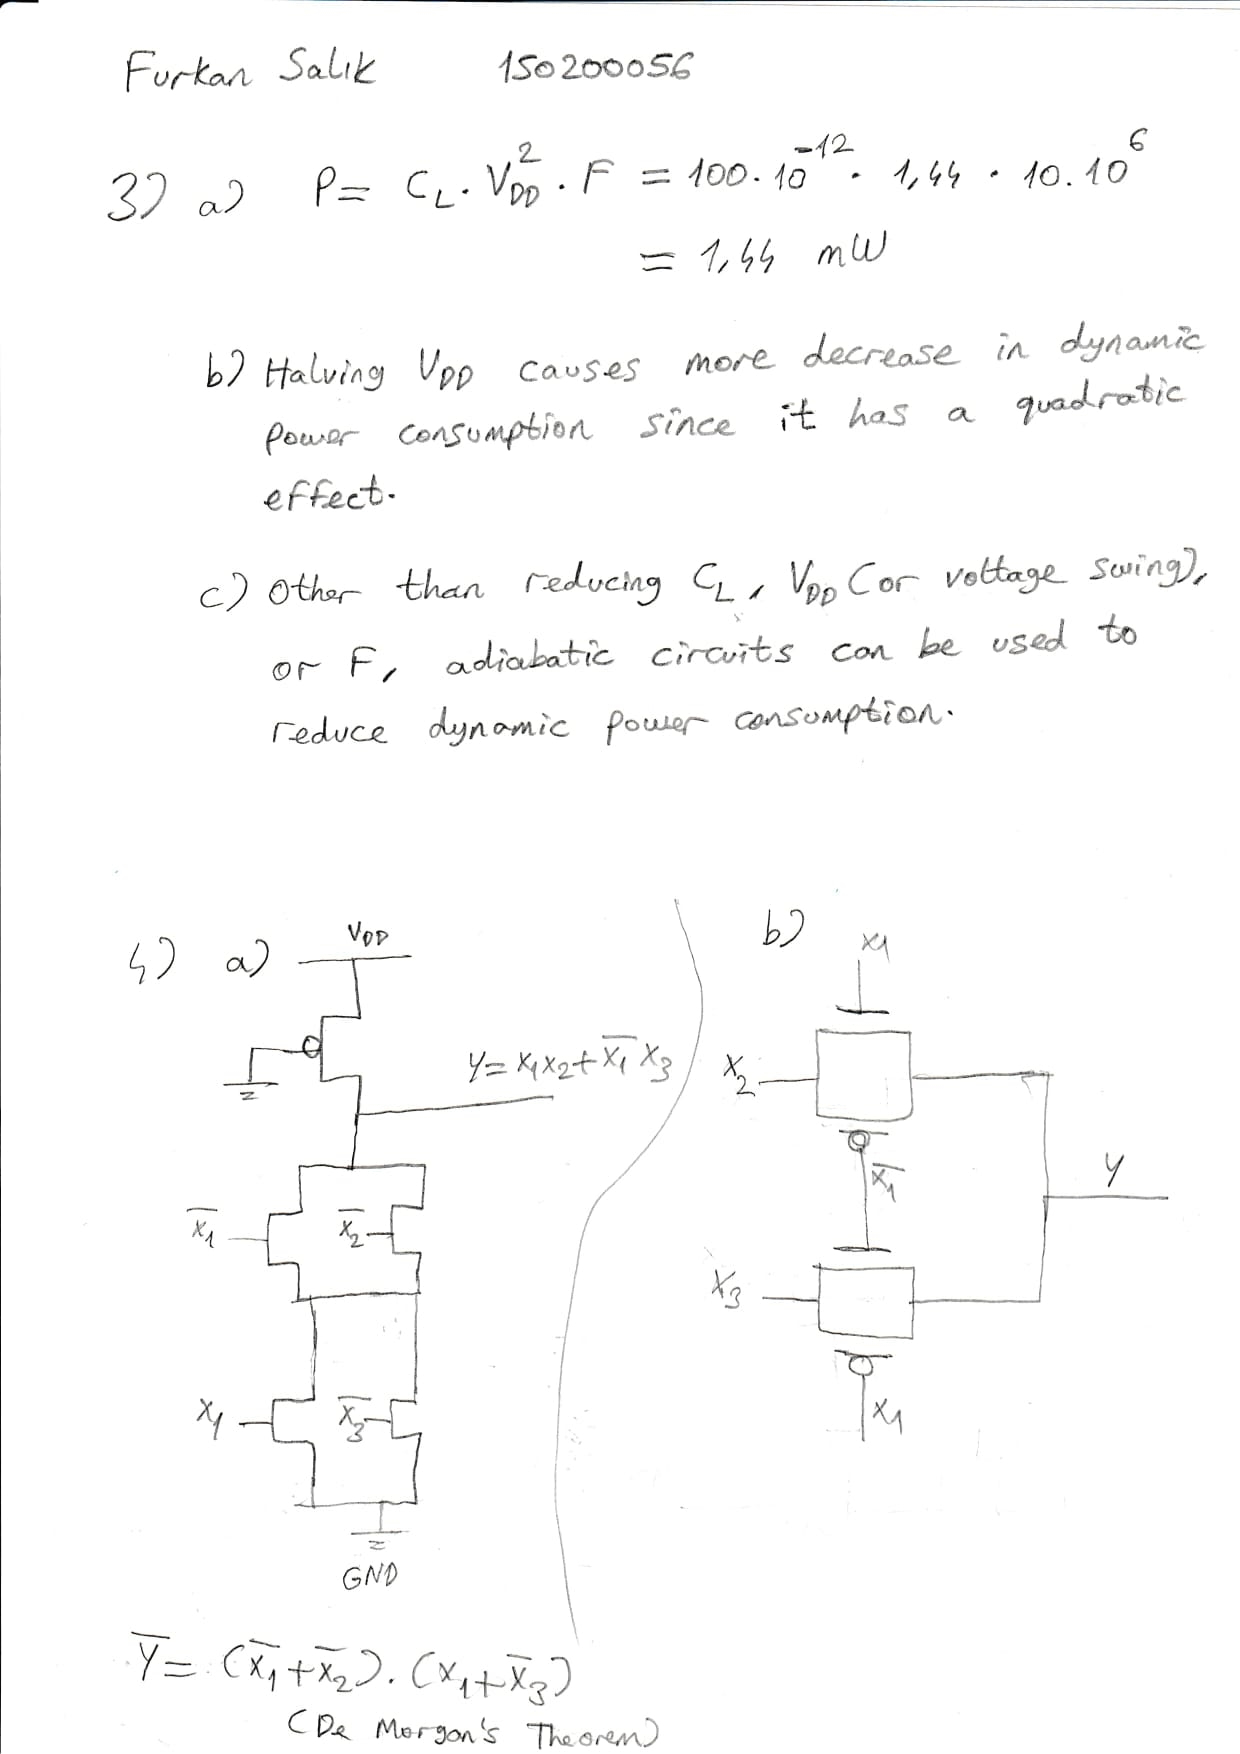 Furkan Salık 150200056
3) a) P = C_L . V_DD^2 . F = 100 . 10^-12 . 1,44 . 10 . 10^6
= 1,44 mW
b) Halving V_DD causes more decrease in dynamic
power consumption since it has a quadratic
effect.
c) Other than reducing C_L, V_DD (or voltage swing),
or F, adiabatic circuits can be used to
reduce dynamic power consumption.
4) a) V_DD
Y = X̅1̅...